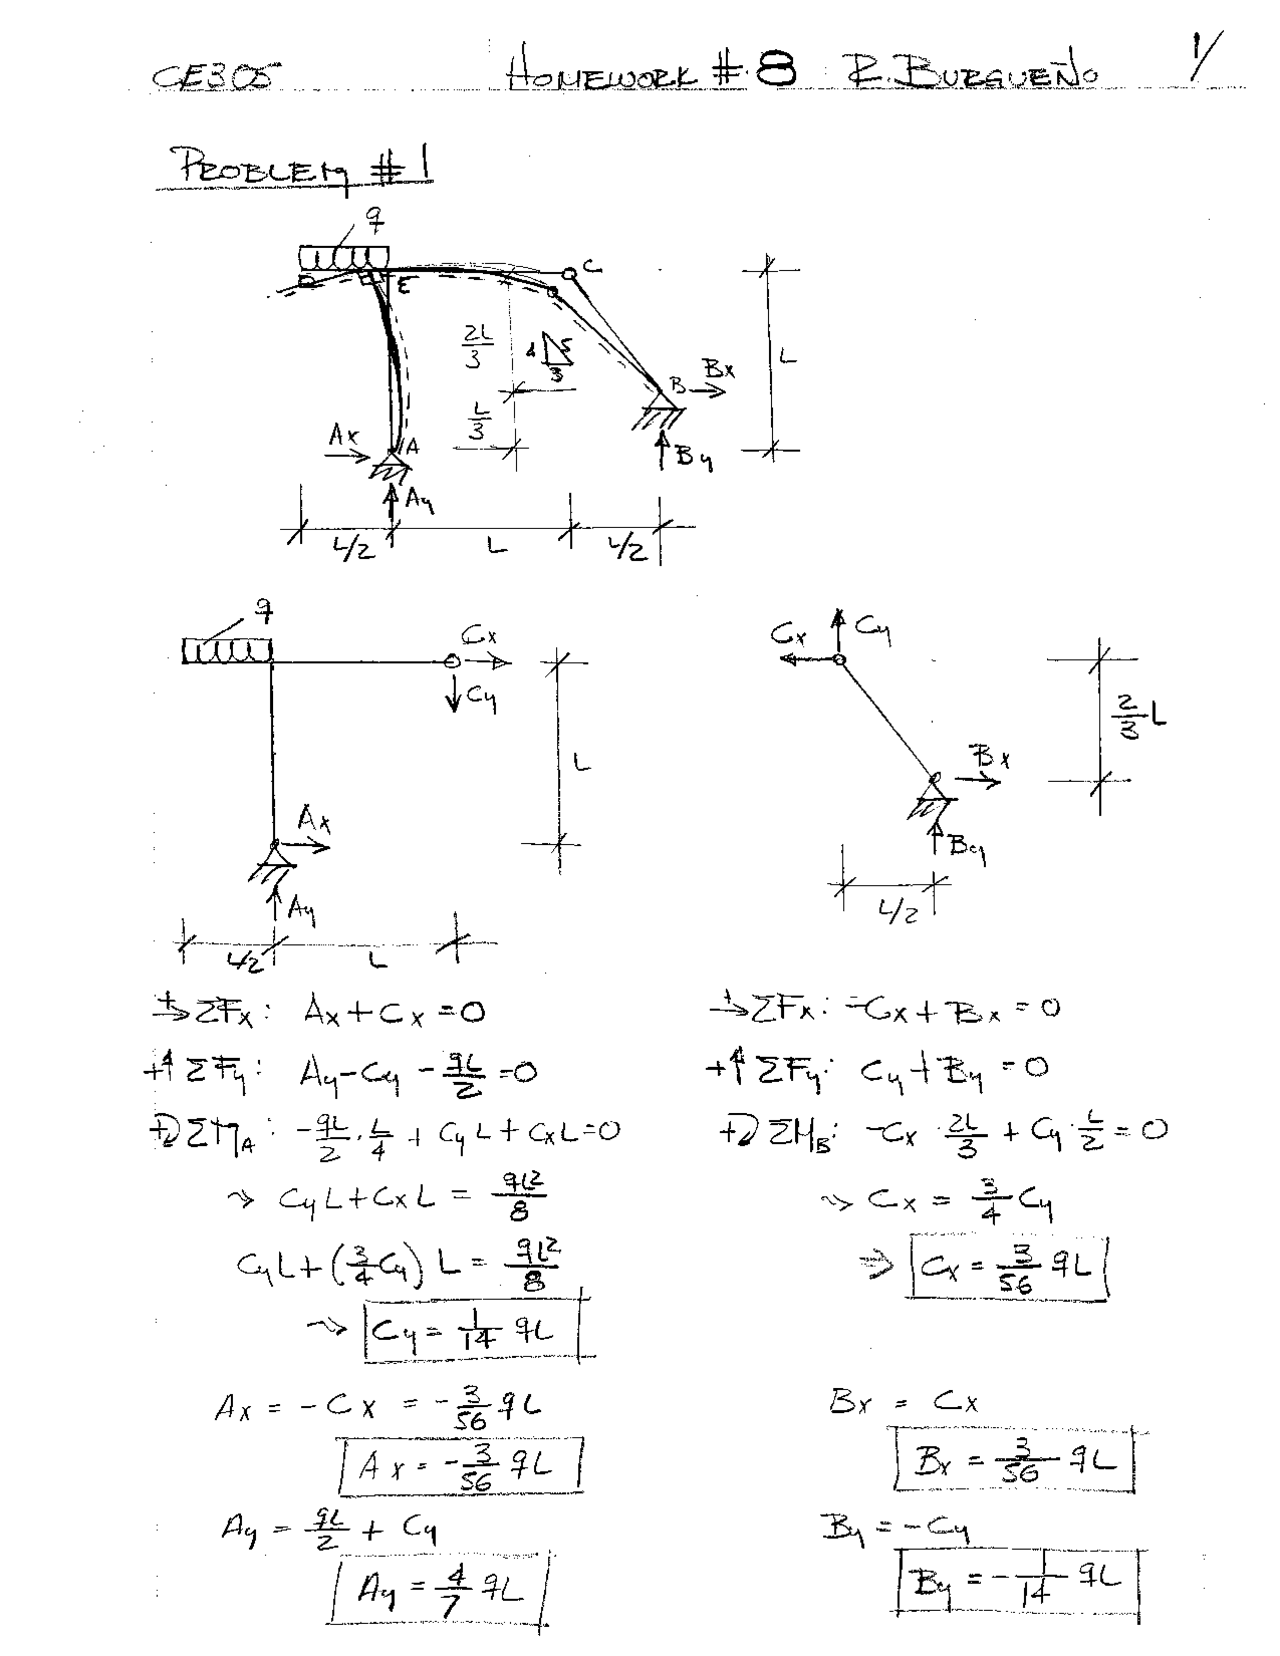 CE305 HOMEWORK #8 R. BURGUEÑO 1/
PROBLEM #1
q
D E C
2L/3 4 5 3 L
B Bx
L/3
Ax A By
Ay
L/2 L L/2
q Cx Cx Cy
Cy 2/3 L
L Bx
Ax
By
Ay L/2
L/2 L
+→ ΣFx: Ax + Cx = 0
+↑ ΣFy: Ay - Cy - qL/2 = 0
+↻ ΣMA: -qL/2 · L/4 + Cy L + Cx L = 0
⇝ Cy L + Cx L = qL²/8
Cy L + (3/4 Cy) L = qL²/8
⇝ Cy = 1/14 qL
Ax = -Cx = -3/56 qL
Ax = -3/56 qL
Ay = qL/2 + Cy
Ay = 4/7 qL
+→ ΣFx: -Cx + Bx = 0
+↑ ΣFy: Cy + By = 0
+↻ ΣMB: -Cx · 2L/3 + Cy · L/2 = 0
⇝ Cx = 3/4 Cy
⇒ Cx = 3/56 qL
Bx = Cx
Bx = 3/56 qL
By = -Cy
By = -1/14 qL